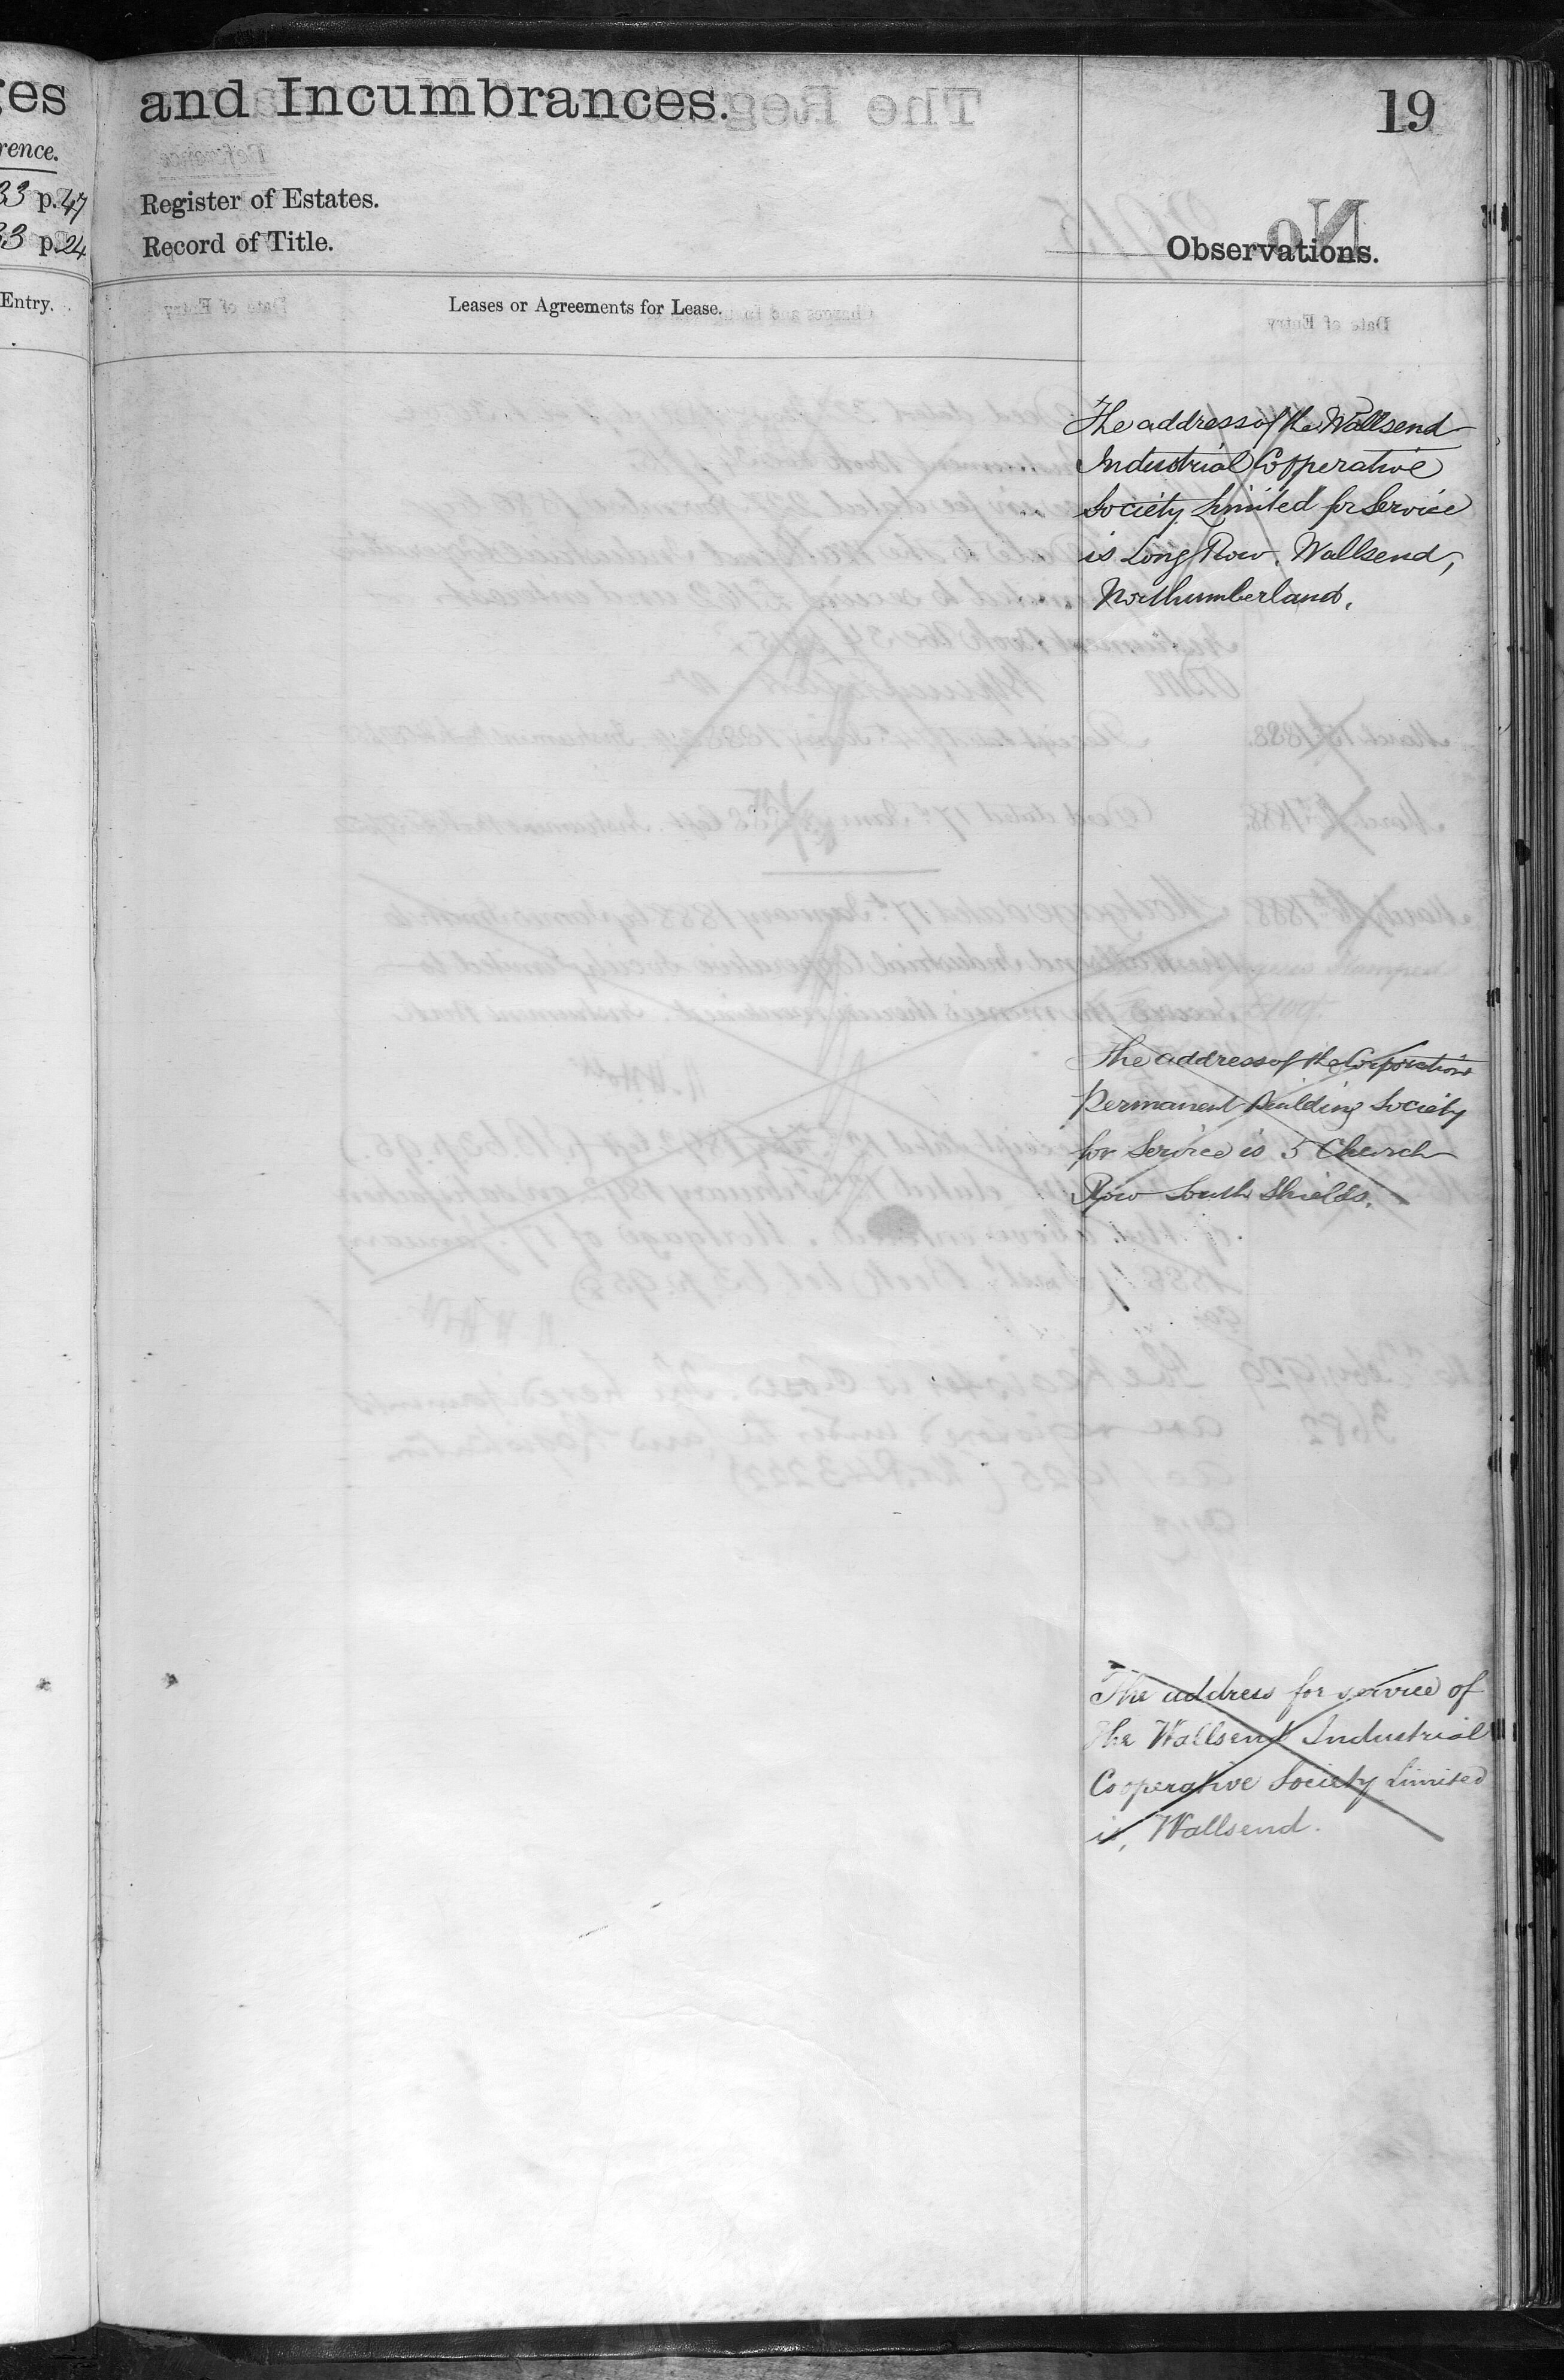 ges
and Incumbrances.
19
rence.
33 p. 47
33 p. 24
Register of Estates.
Record of Title.
Observations.
Entry.
Leases or Agreements for Lease.
The address of the Wallsend
Industrial Cooperative
Society Limited for Service
is Long Row, Wallsend,
Northumberland.
The address of the Corporation
Permanent Building Society
for Service is 5 Church
Row South Shields.
The address for service of
the Wallsend Industrial
Cooperative Society Limited
is, Wallsend.